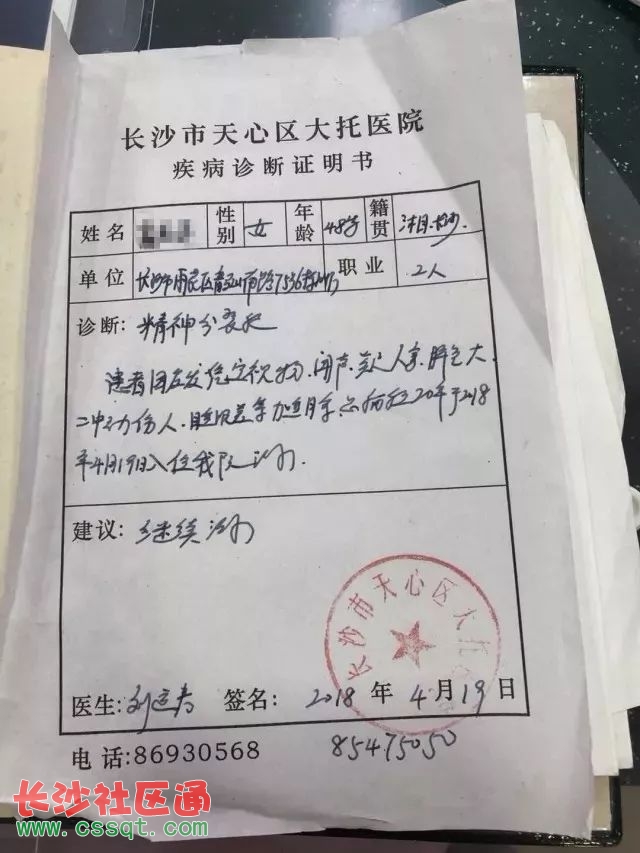 长沙市天心区大托医院
疾病诊断证明书
姓名 性别 女 年龄 48岁 籍贯
单位 长沙市雨花区 职业 工人
诊断: 精神分裂症
患者因反复凭空视物、闻声、疑人害、胆怯
冲动伤人、睡眠差 加重月余 总病程20年于2018
年4月19日入住我院治疗.
建议: 继续治疗
长沙市天心区大托
医生: 签名: 2018 年 4 月 19 日
电话:86930568 85475050
长沙社区通
www.cssqt.com